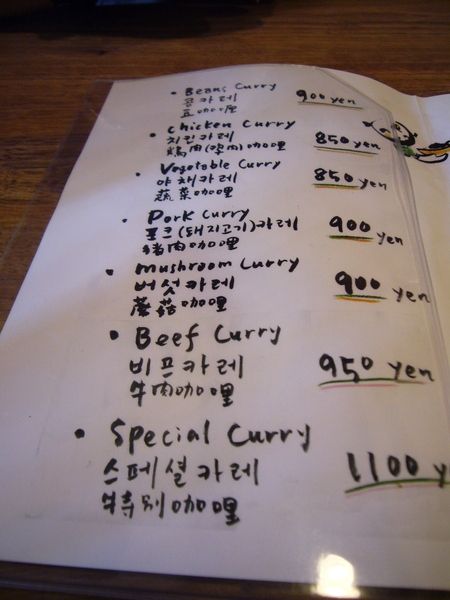 • Beans Curry
콩카레
豆咖哩 900 yen
• Chicken Curry
치킨카레
咖哩 850 yen
• Vegetable Curry
야채카레
蔬菜咖哩 850 yen
• Pork Curry
포크(돼지고기)카레
猪肉咖哩 900 yen
• Mushroom Curry
버섯카레
蘑菇咖哩 900 yen
• Beef Curry
비프카레
牛肉咖哩 950 yen
• Special Curry
스페셜카레
特别咖哩 1100 y